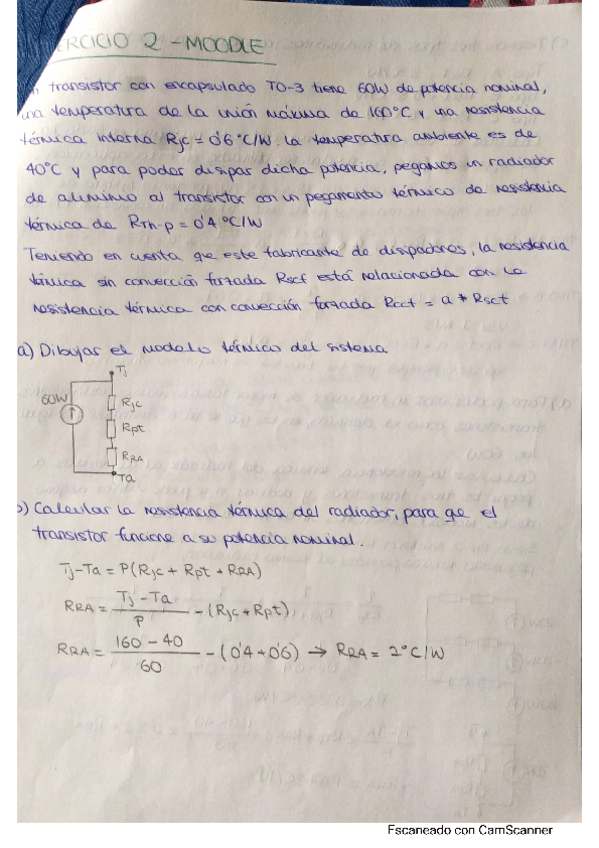 ERCICIO 2 - MOODLE
n transistor con encapsulado TO-3 tiene 60W de potencia nominal,
una temperatura de la unión máxima de 160°C y una resistencia
térmica interna Rjc = 0'6 °C/W. la temperatura ambiente es de
40°C y para poder disipar dicha potencia, pegamos un radiador
de aluminio al transistor con un pegamento térmico de resistencia
térmica de RTh-p = 0'4 °C/W
Teniendo en cuenta que este fabricante de disipadores, la resistencia
térmica sin convección forzada Rscf está relacionada con la
resistencia térmica con convección forzada Rccf = a * Rscf
a) Dibujar el modelo térmico del sistema
Tj
60W
Rjc
Rpt
RRA
Ta
b) Calcular la resistencia térmica del radiador, para que el
transistor funcione a su potencia nominal.
Tj-Ta = P(Rjc + Rpt + RRA)
RRA = Tj - Ta / P - (Rjc + Rpt)
RRA = 160 - 40 / 60 - (0'4 + 0'6) → RRA = 2°C/W
Escaneado con CamScanner